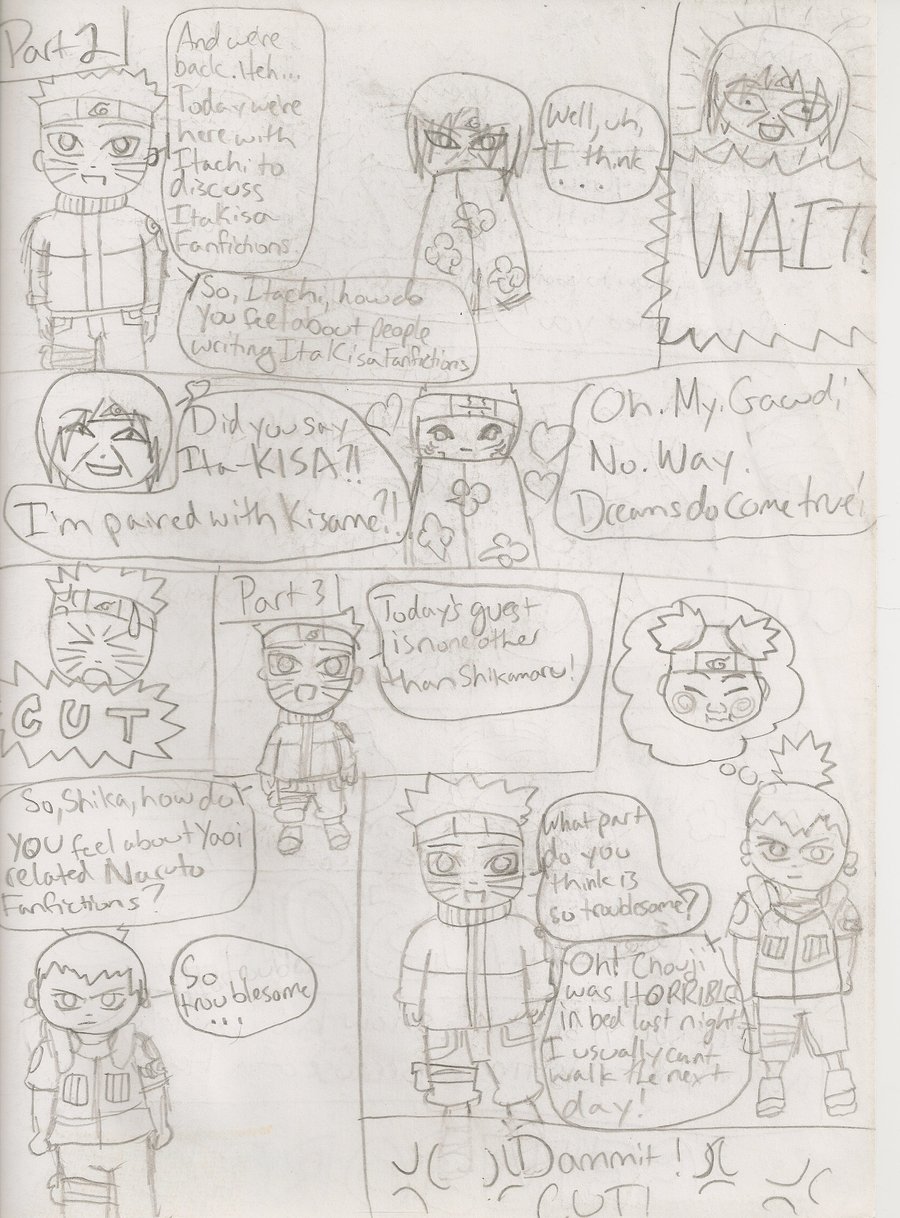 Part 2
And we're
back. Heh...
Today we're
here with
Itachi to
discuss
ItaKisa
Fanfictions.
So, Itachi, how do
you feel about people
writing ItaKisa Fanfictions
Well, uh,
I think
...
WAIT!
Did you say
Ita-KISA?!
I'm paired with Kisame?!
Oh. My. Gawd!
No. Way!
Dreams do come true!
CUT
Part 3
Today's guest
is none other
than Shikamaru!
So, Shika, how do
you feel about Yaoi
related Naruto
Fanfictions?
So
troublesome
...
What part
do you
think is
so troublesome?
Oh! Chouji
was HORRIBLE
in bed last night
I usually can't
walk the next
day!
Dammit!
CUT!